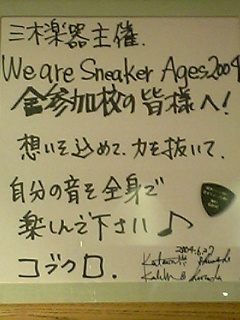 三木楽器主催.
We are Sneaker Ages2004
全参加校の皆様へ!
想いを込めて、力を抜いて、
自分の音を全身で
楽しんで下さい♪
コブクロ.
2004.6.27